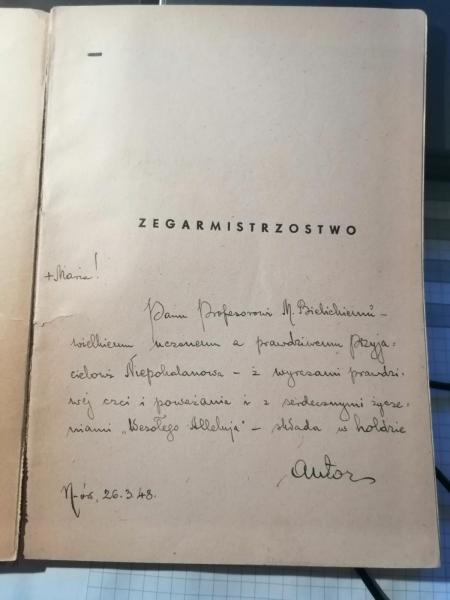 ZEGARMISTRZOSTWO
+ Maria!
Panu Profesorowi M. Bielickiemu –
wielkiemu uczonemu a prawdziwemu Przyja-
cielowi Niepokalanowa – z wyrazami prawdzi-
wej czci i poważania i z serdecznymi życze-
niami „Wesołego Alleluja" – składa w hołdzie
autor
N-ów, 26.3.48.